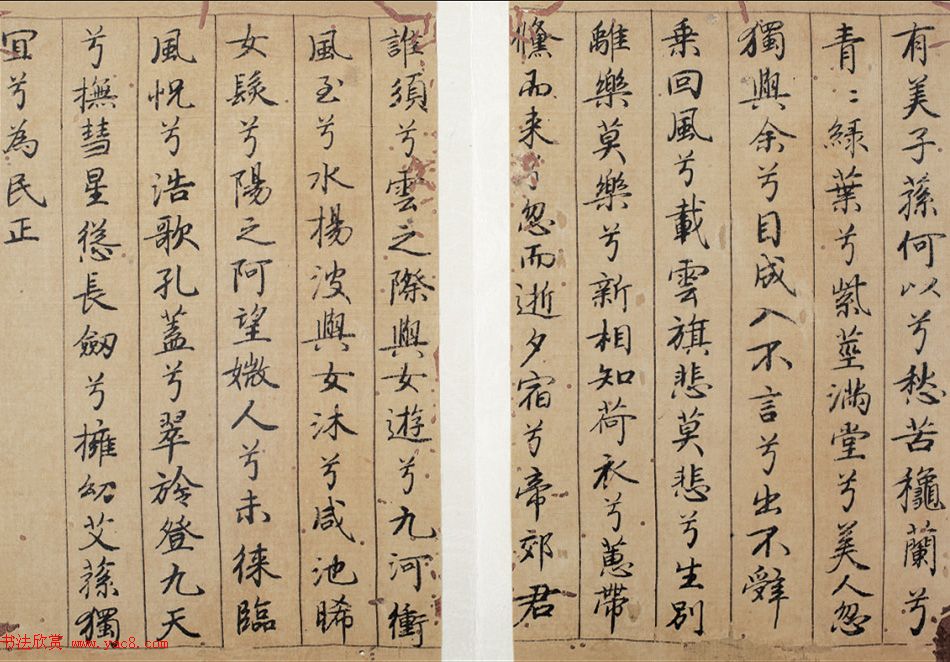 有美子蓀何以兮愁苦龝蘭兮
青〻綠葉兮紫莖滿堂兮美人忽
獨與余兮目成入不言兮出不辤
乗回風兮載雲旗悲莫悲兮生別
離樂莫樂兮新相知荷衣兮蕙帶
儵而来兮忽而逝夕宿兮帝郊君
誰須兮雲之際與女遊兮九河衝
風至兮水揚波與女沐兮咸池晞
女髮兮陽之阿望媺人兮未徠臨
風怳兮浩歌孔蓋兮翠旍登九天
兮撫彗星慫長劔兮擁幼艾蓀獨
宜兮為民正
书法欣赏 www.yac8.com